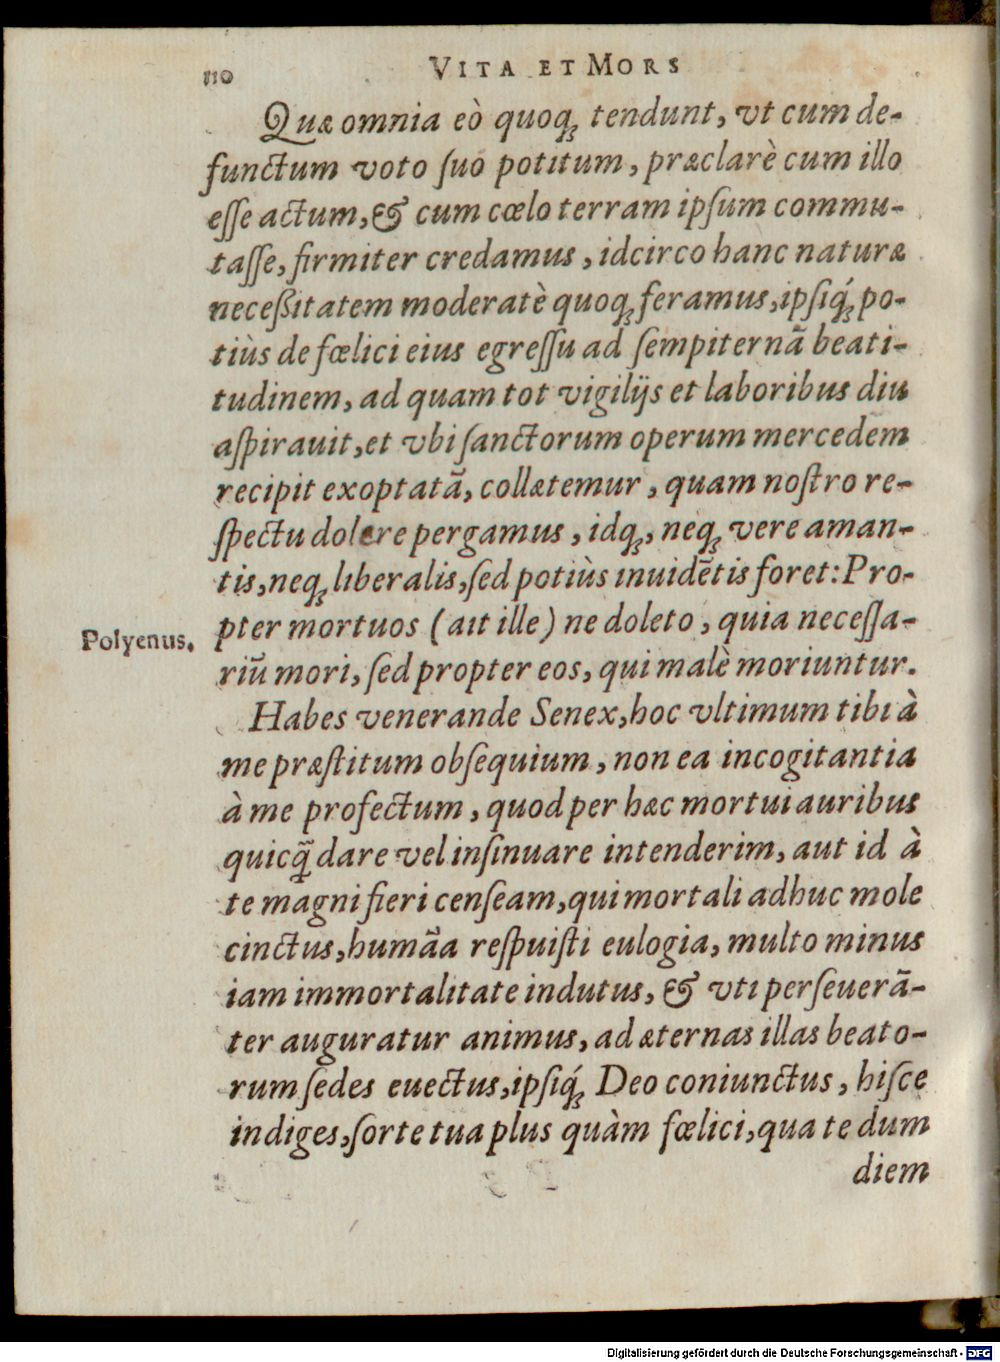 110
VITA ET MORS
Quæ omnia eò quoq; tendunt, vt cum de-
functum voto ſuo potitum, præclarè cum illo
eſſe actum, & cum cœlo terram ipſum commu-
taſſe, firmiter credamus, idcirco hanc naturæ
neceßitatem moderatè quoq; feramus, ipſiq́; po-
tiùs de fœlici eius egreſſu ad ſempiternã beati-
tudinem, ad quam tot vigilijs et laboribus diu
aſpirauit, et vbi ſanctorum operum mercedem
recipit exoptatã, collætemur, quam noſtro re-
ſpectu dolere pergamus, idq;, neq; vere aman-
tis, neq; liberalis, ſed potiùs inuidẽtis foret: Pro-
Polyenus.
pter mortuos (ait ille) ne doleto, quia neceſſa-
riũ mori, ſed propter eos, qui malè moriuntur.
Habes venerande Senex, hoc vltimum tibi à
me præſtitum obſequium, non ea incogitantia
à me profectum, quod per hæc mortui auribus
quicq̃ dare vel inſinuare intenderim, aut id à
te magni fieri cenſeam, qui mortali adhuc mole
cinctus, humãa reſpuiſti eulogia, multo minus
iam immortalitate indutus, & vti perſeuerã-
ter auguratur animus, ad æternas illas beato-
rum ſedes euectus, ipſiq́; Deo coniunctus, hiſce
indiges, ſorte tua plus quàm fœlici, qua te dum
diem
Digitalisierung gefördert durch die Deutsche Forschungsgemeinschaft - DFG